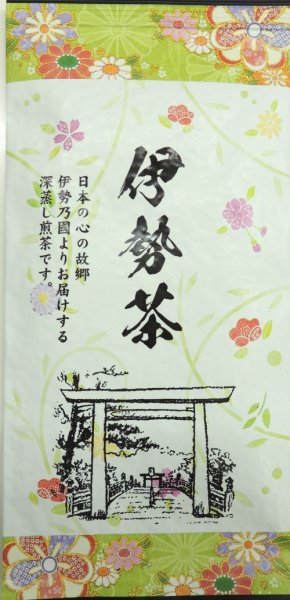 伊勢茶
日本の心の故郷
伊勢乃國よりお届けする
深蒸し煎茶です。